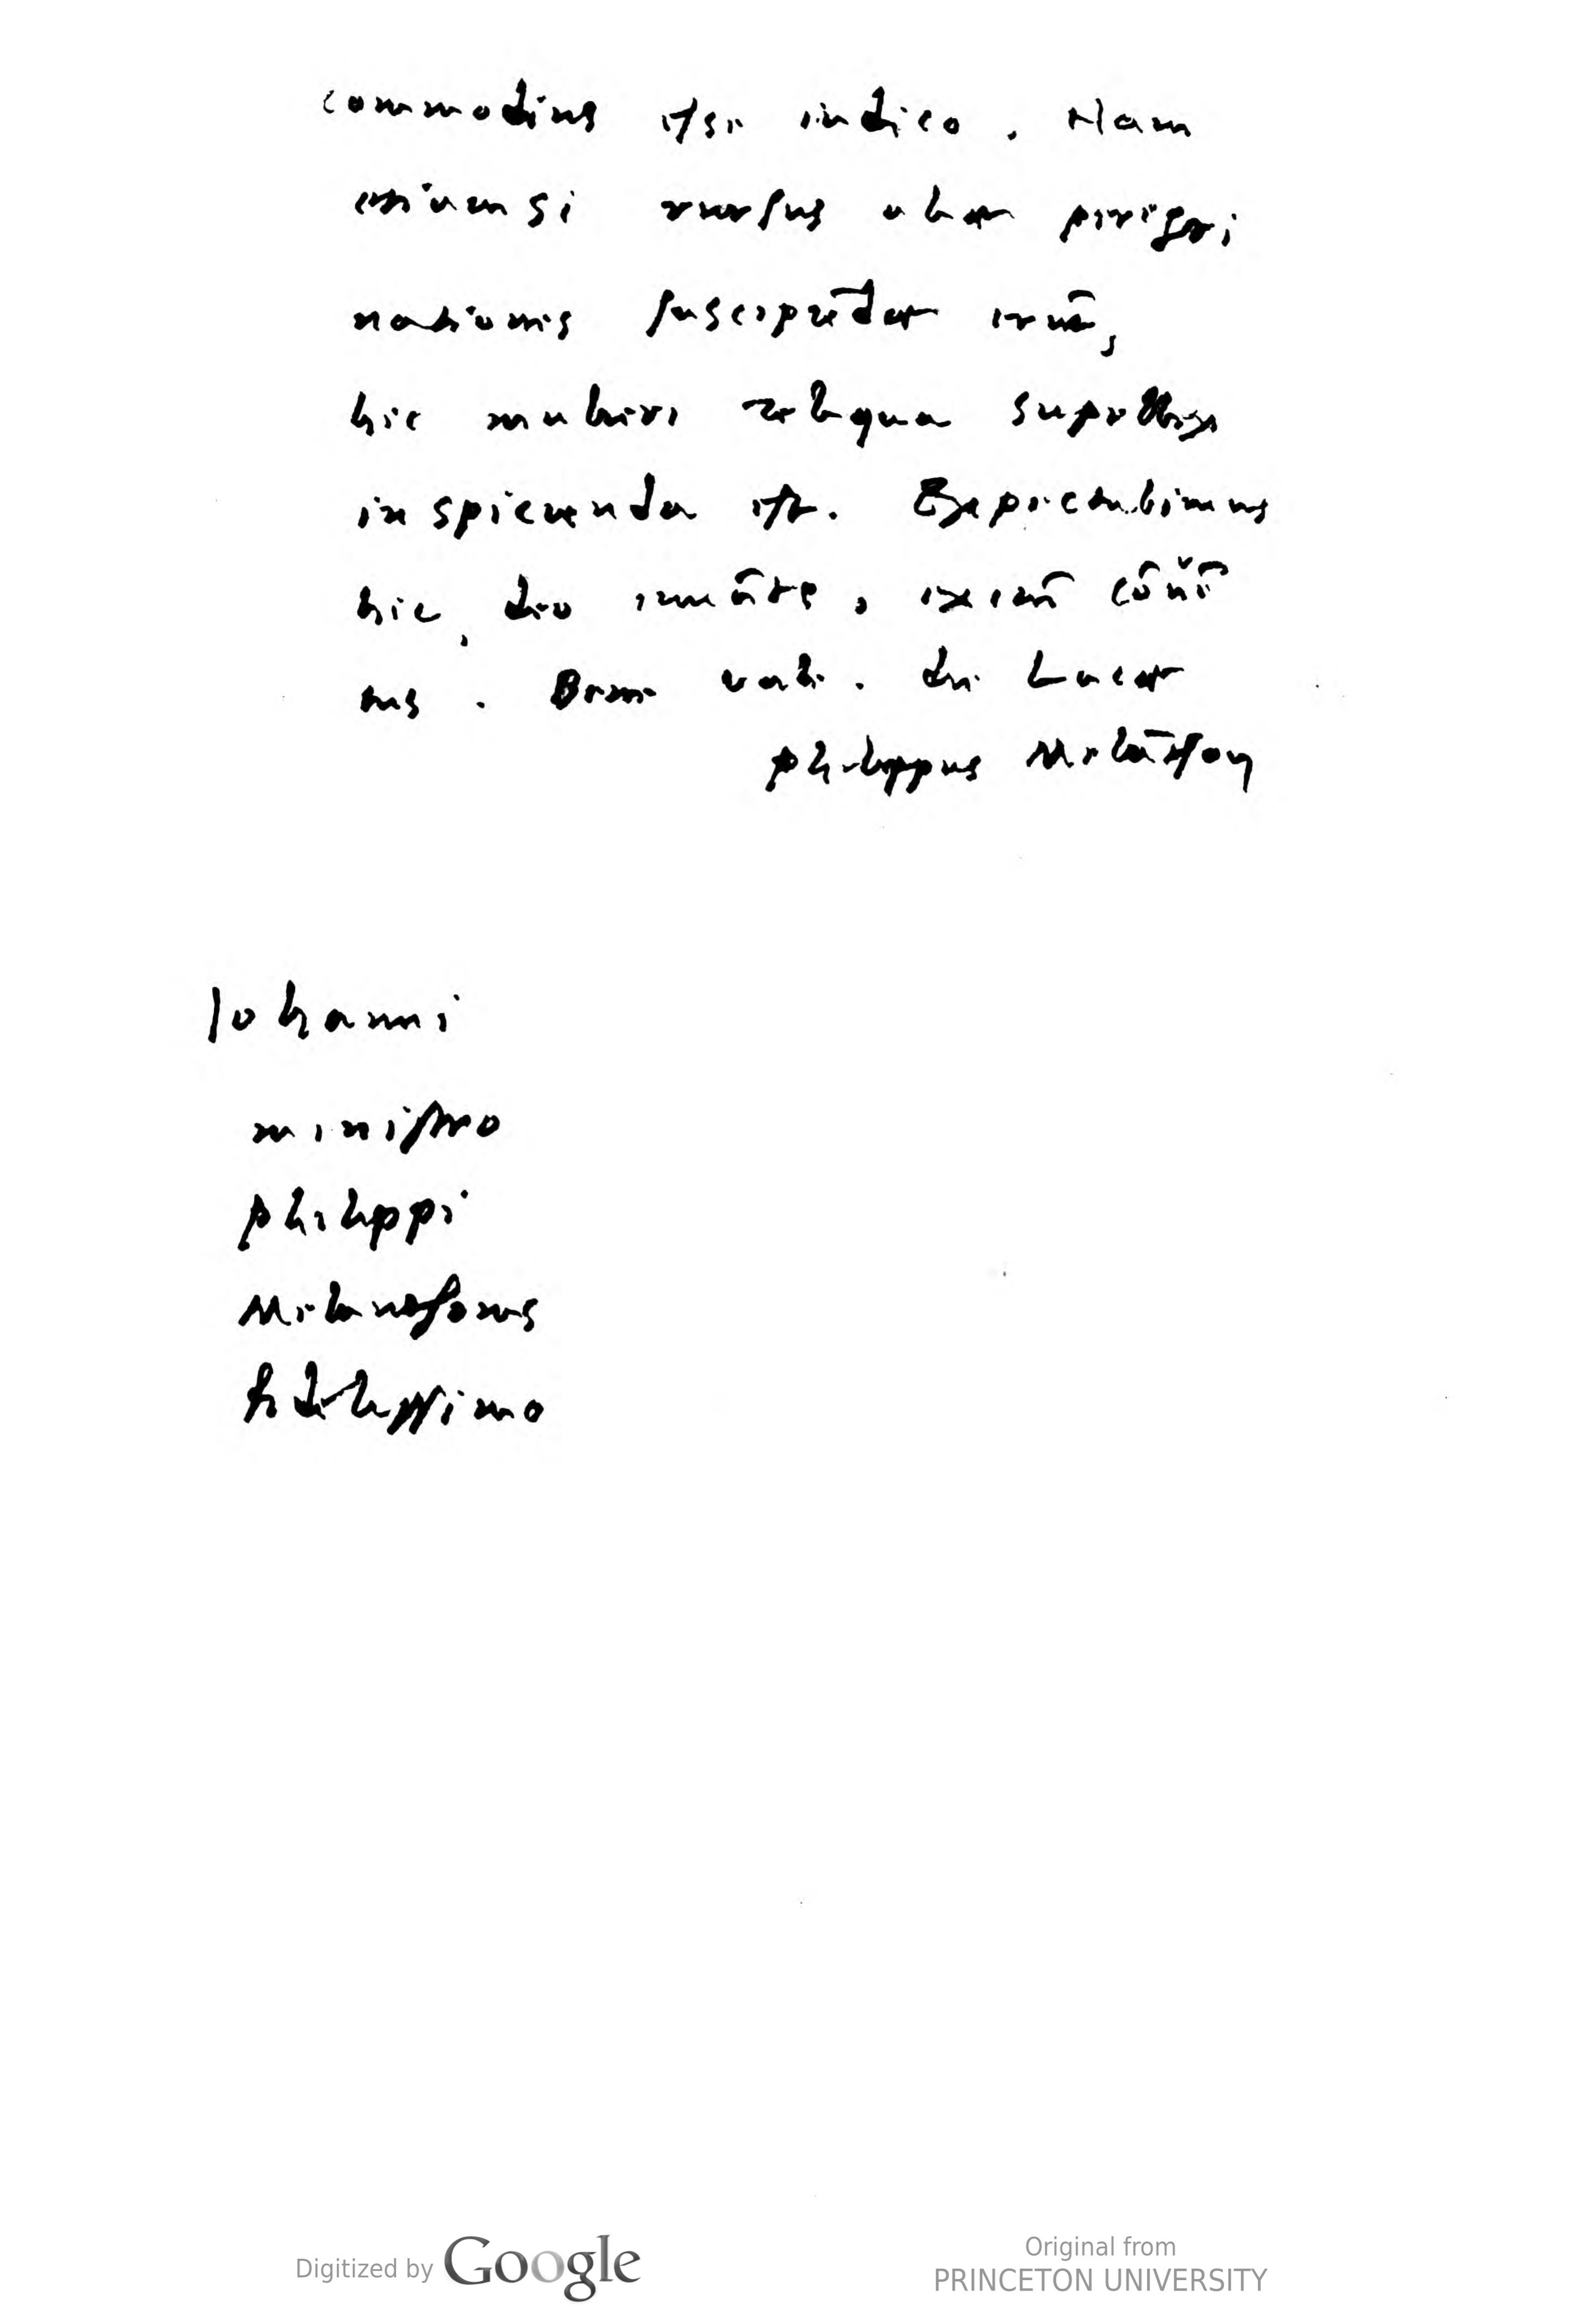 commodius esse iudico. Nam
etiamsi rursus alia peregri
nationis suscipiēda erit,
hic mulieri reliqua supellex
inspicienda est. Expectabimus
hic, deo iuuāte,
tus. Bene vale. die Luciae
Philippus Melāthon
Iohanni
ministro
Philippi
Melanthonis
fidelissimo
Digitized by Google
Original from
PRINCETON UNIVERSITY